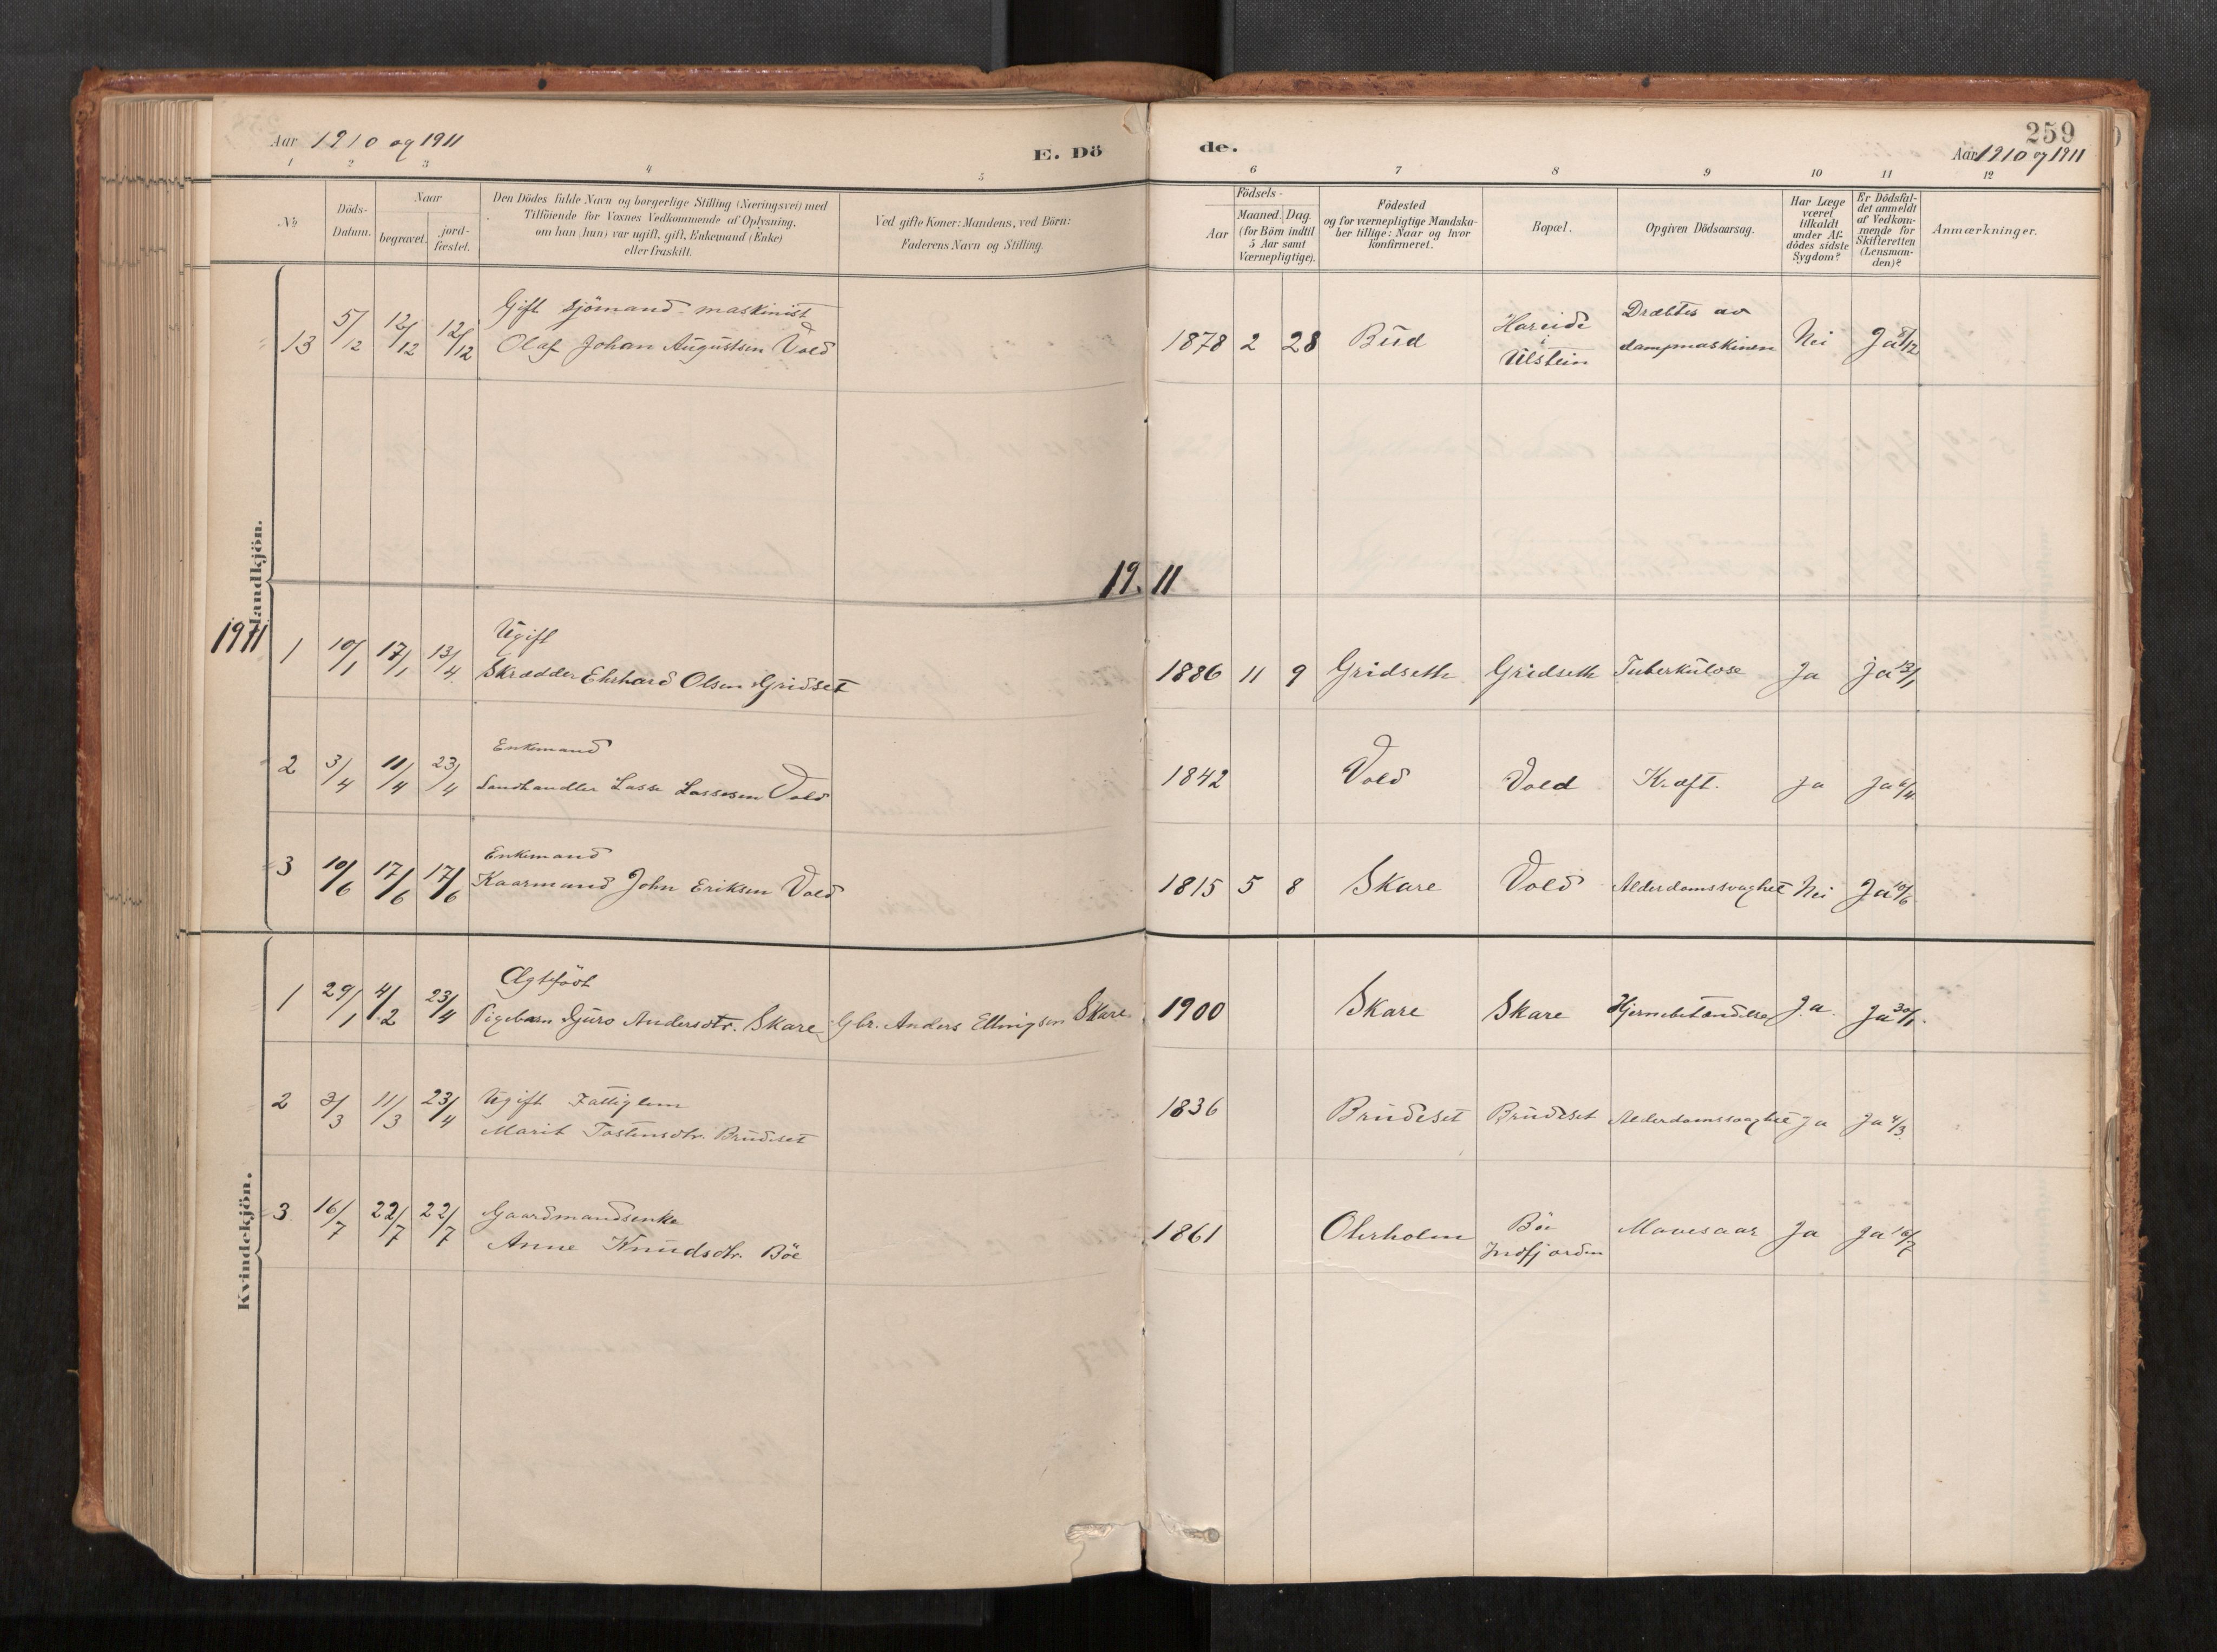 259
Aar 1910 og 1911
E. Dö
de.
Aar 1910 og 1911
1 2 3 4 5 6 7 8 9 10 11 12
No
Döds-
Datum.
Naar
begravet.
jord-
fæstet.
Den Dödes fulde Navn og borgerlige Stilling (Næringsvei) med
Tilföiende for Voxnes Vedkommende af Oplysning,
om han (hun) var ugift, gift, Enkemand (Enke)
eller fraskilt.
Ved gifte Koner: Mandens, ved Börn:
Faderens Navn og Stilling.
Födsels-
Aar
Maaned. Dag.
(for Börn indtil
5 Aar samt
Værnepligtige).
Födested
og for værnepligtige Mandska-
ber tillige: Naar og hvor
konfirmeret.
Bopæl.
Opgiven Dödsaarsag.
Har Læge
været
tilkaldt
under Af-
dödes sidste
Sygdom?
Er Dödsfal-
det anmeldt
af Vedkom-
mende for
Skifteretten
(Lensman-
den)?
Anmærkninger.
Mandkjön.
13 5/12 12/12 12/12
Gift sjömand-maskinist
Olaf Johan Augustsen Vold
1878 2 28 Bud
Hareide
i
Ulstein
Dræbtes av
dampmaskinen
Nei Ja 8/12
19.11
1911
1 10/1 17/1 13/4
Ugift
Skrædder Ehrhard Olsen Gridset
1886 11 9 Gridseth Gridseth Tuberkulose Ja ja 13/1
2 3/4 11/4 23/4
Enkemand
Landhandler Lasse Lassesen Vold
1842 Vold Vold Kræft. Ja Ja 6/4
3 10/6 17/6 17/6
Enkemand
Kaarmand John Eriksen Vold
1815 5 8 Skare Vold Alderdomssvaghet Nei Ja 10/6
Kvindekjön.
1 29/1 4/2 23/4
Ægtefödt
Pigebarn Guro Andersdtr. Skare Gbr. Anders Ellingsen Skare
1900 Skare Skare Hjernebetændelse Ja. Ja 30/1.
2 3/3 11/3 23/4
Ugift Fattiglem
Marit Tostensdtr. Brudeset
1836 Brudeset Brudeset Alderdomssvaghet Ja Ja 4/3
3 16/7 22/7 22/7
Gaardmandsenke
Anne Knudsdtr. Böe
1861 Oterholm
Böe
Indfjorden
Mavesaar Ja Ja 16/7